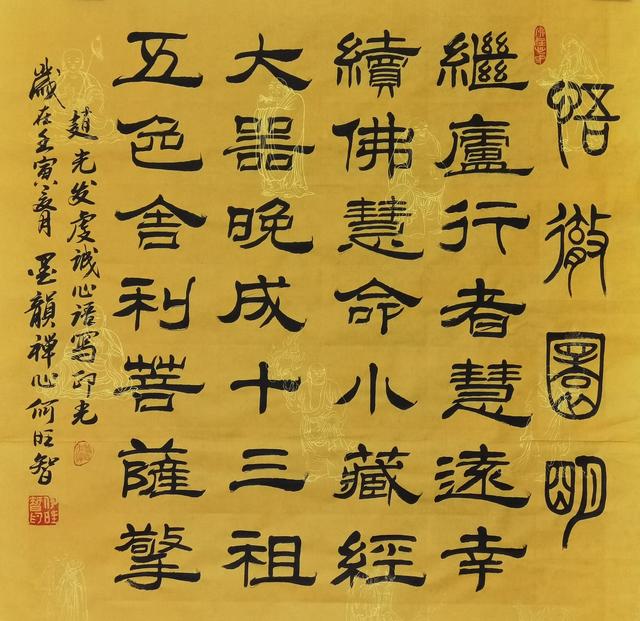 悟徹圓明
繼廬行者慧遠幸
續佛慧命小藏經
大器晚成十三祖
五色舍利菩薩擎
趙先發虔誠心語寫印光
歲在壬寅夏月 墨韻禪心何旺智